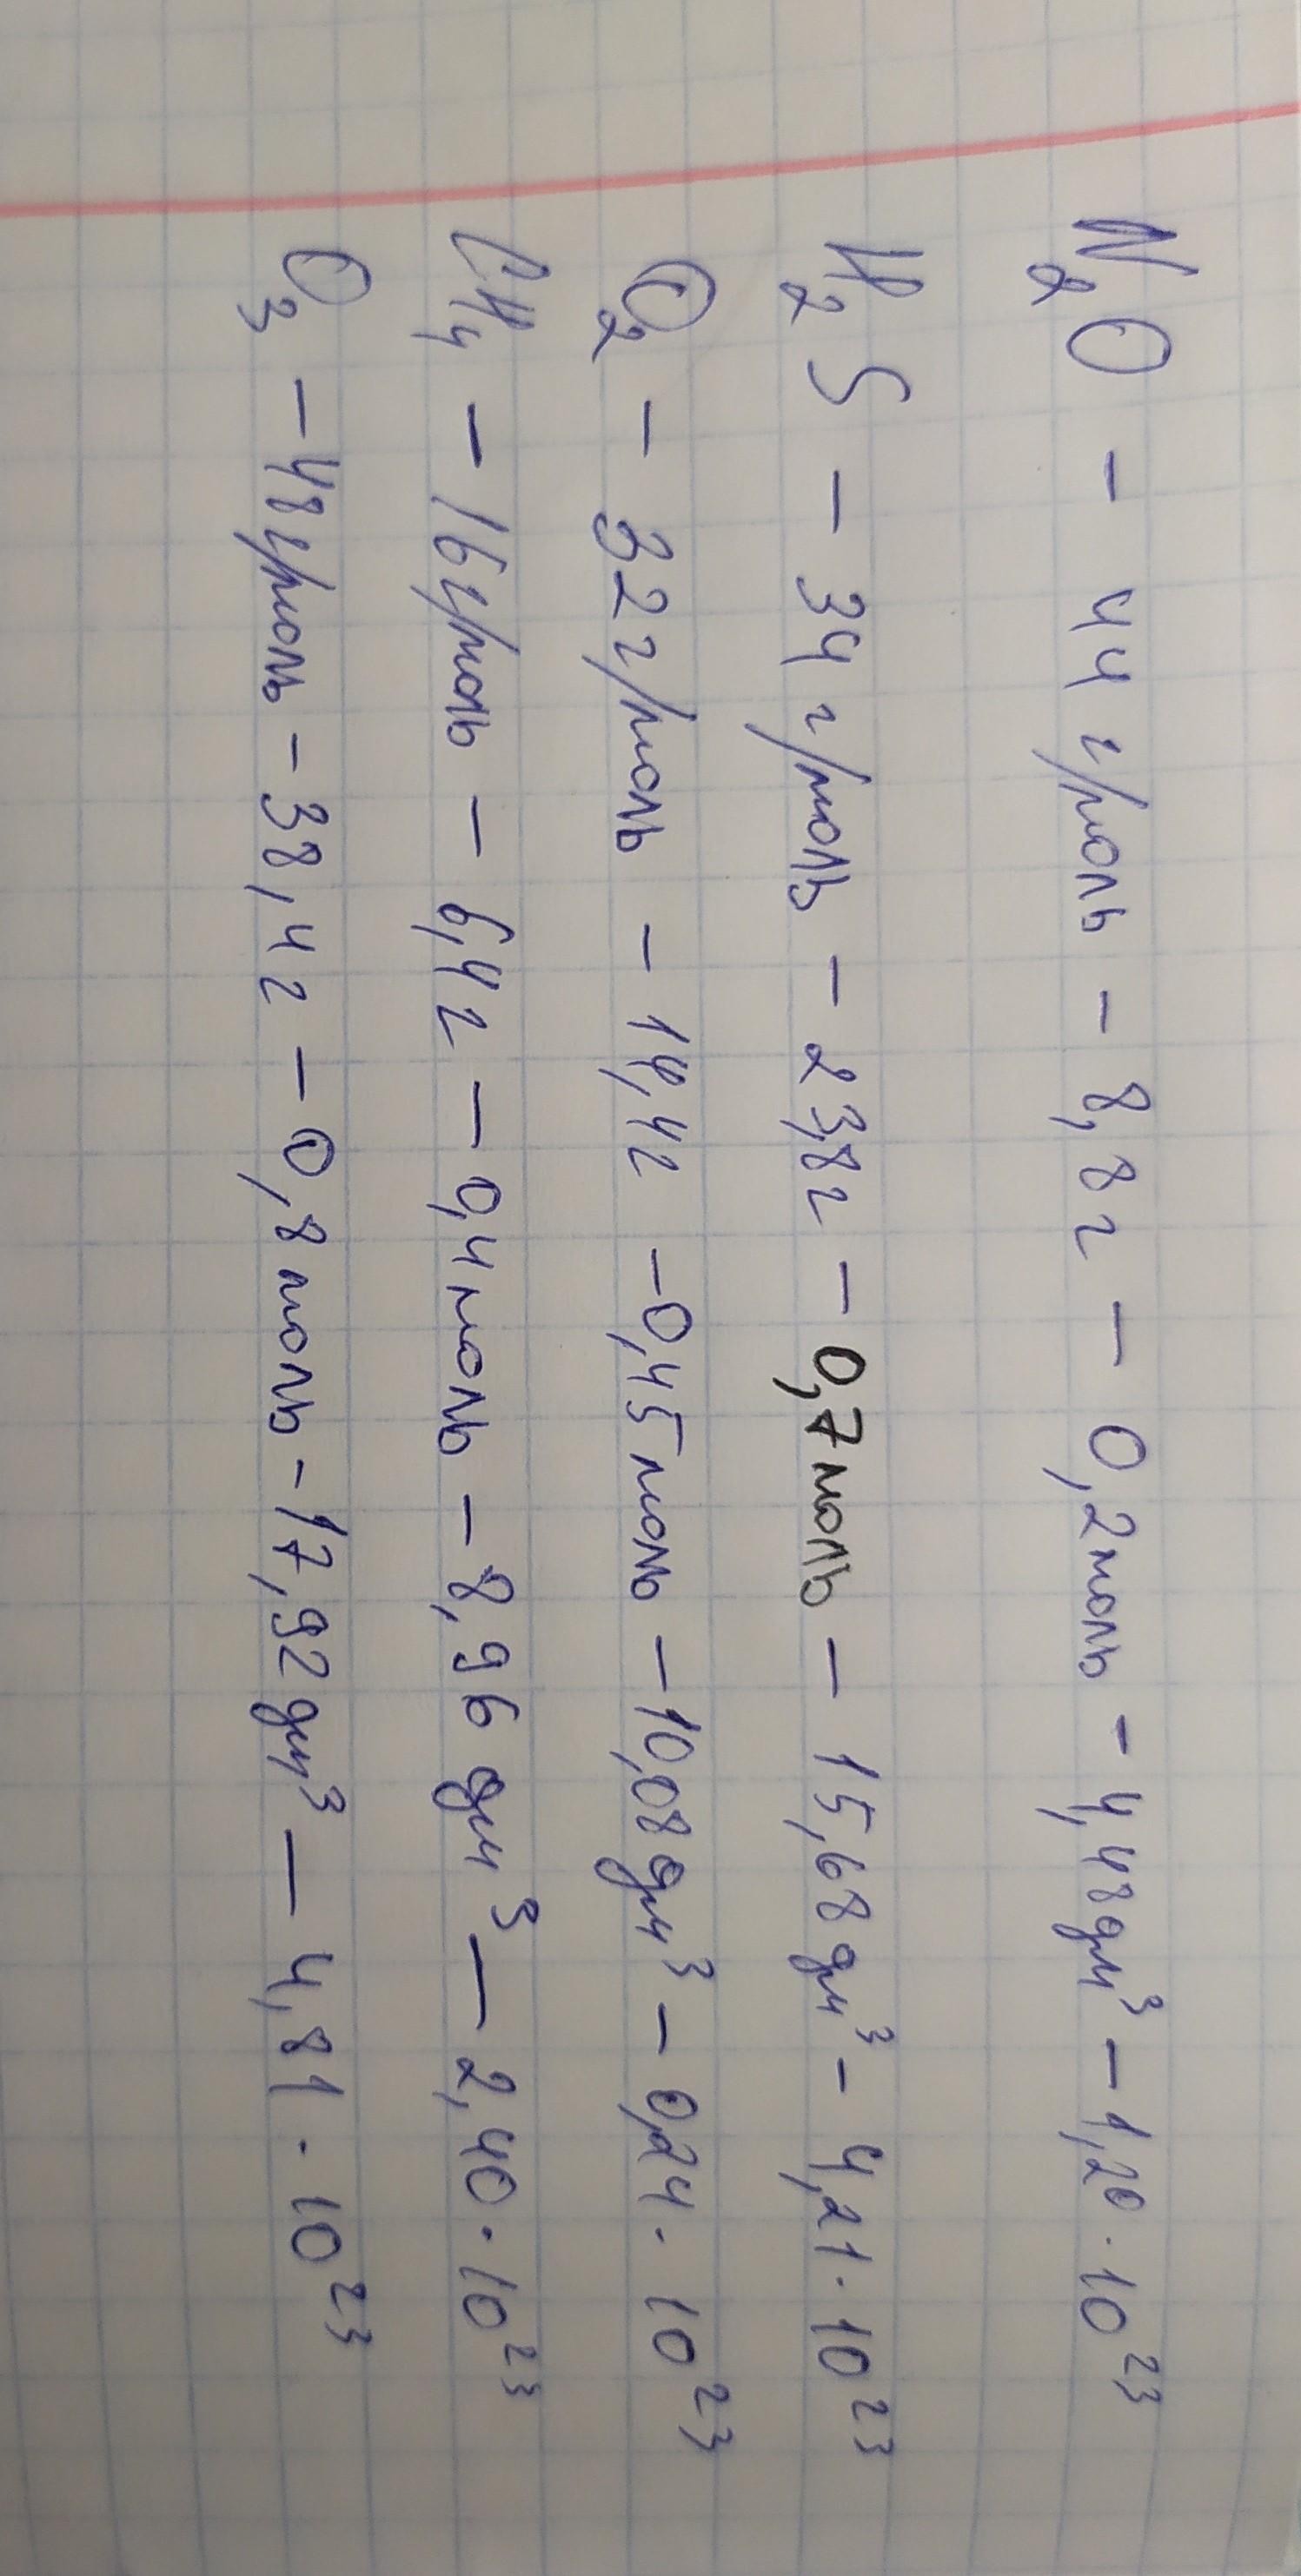 N₂O – 44 г/моль – 8,8г – 0,2моль – 4,48дм³ – 1,20 · 10²³
H₂S – 34 г/моль – 23,8г – 0,7моль – 15,68дм³ – 4,21 · 10²³
O₂ – 32г/моль – 14,4г – 0,45моль – 10,08дм³ – 0,24 · 10²³
CH₄ – 16г/моль – 6,4г – 0,4моль – 8,96 дм³ – 2,40 · 10²³
O₃ – 48г/моль – 38,4г – 0,8моль – 17,92дм³ – 4,81 · 10²³